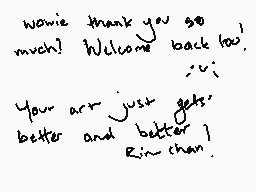 wowie thank you so
much! Welcome back too!
;'u';
Your art just gets
better and better
Rin chan!